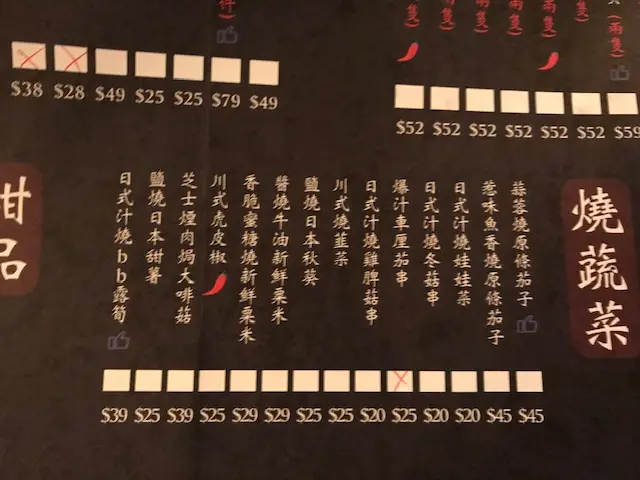 件）
（兩隻）
（兩隻）
（兩隻）
（兩隻）
（兩隻）
隻）
（兩隻）
$38 $28 $49 $25 $25 $79 $49
$52 $52 $52 $52 $52 $52 $59
燒蔬菜
蒜蓉燒原條茄子
惹味魚香燒原條茄子
日式汁燒娃娃菜
日式汁燒冬菇串
爆汁車厘茄串
日式汁燒雞脾菇串
川式燒韮菜
鹽燒日本秋葵
醬燒牛油新鮮粟米
香脆蜜糖燒新鮮粟米
川式虎皮椒
芝士煙肉焗大啡菇
鹽燒日本甜薯
日式汁燒bb露筍
$39 $25 $39 $25 $29 $29 $25 $25 $20 $25 $20 $20 $45 $45
甜品